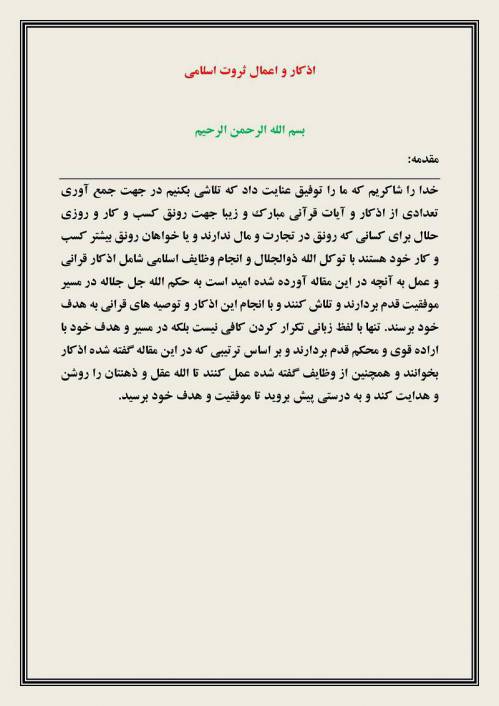 اذکار و اعمال ثروت اسلامی
بسم الله الرحمن الرحیم
مقدمه:
خدا را شاکریم که ما را توفیق عنایت داد که تلاشی بکنیم در جهت جمع آوری
تعدادی از اذکار و آیات قرآنی مبارک و زیبا جهت رونق کسب و کار و روزی
حلال برای کسانی که رونق در تجارت و مال ندارند و یا خواهان رونق بیشتر کسب
و کار خود هستند با توکل الله ذوالجلال و انجام وظایف اسلامی شامل اذکار قرانی
و عمل به آنچه در این مقاله آورده شده امید است به حکم الله جل جلاله در مسیر
موفقیت قدم بردارند و تلاش کنند و با انجام این اذکار و توصیه های قرانی به هدف
خود برسند. تنها با لفظ زبانی تکرار کردن کافی نیست بلکه در مسیر و هدف خود با
اراده قوی و محکم قدم بردارند و بر اساس ترتیبی که در این مقاله گفته شده اذکار
بخوانند و همچنین از وظایف گفته شده عمل کنند تا الله عقل و ذهنتان را روشن
و هدایت کند و به درستی پیش بروید تا موفقیت و هدف خود برسید.